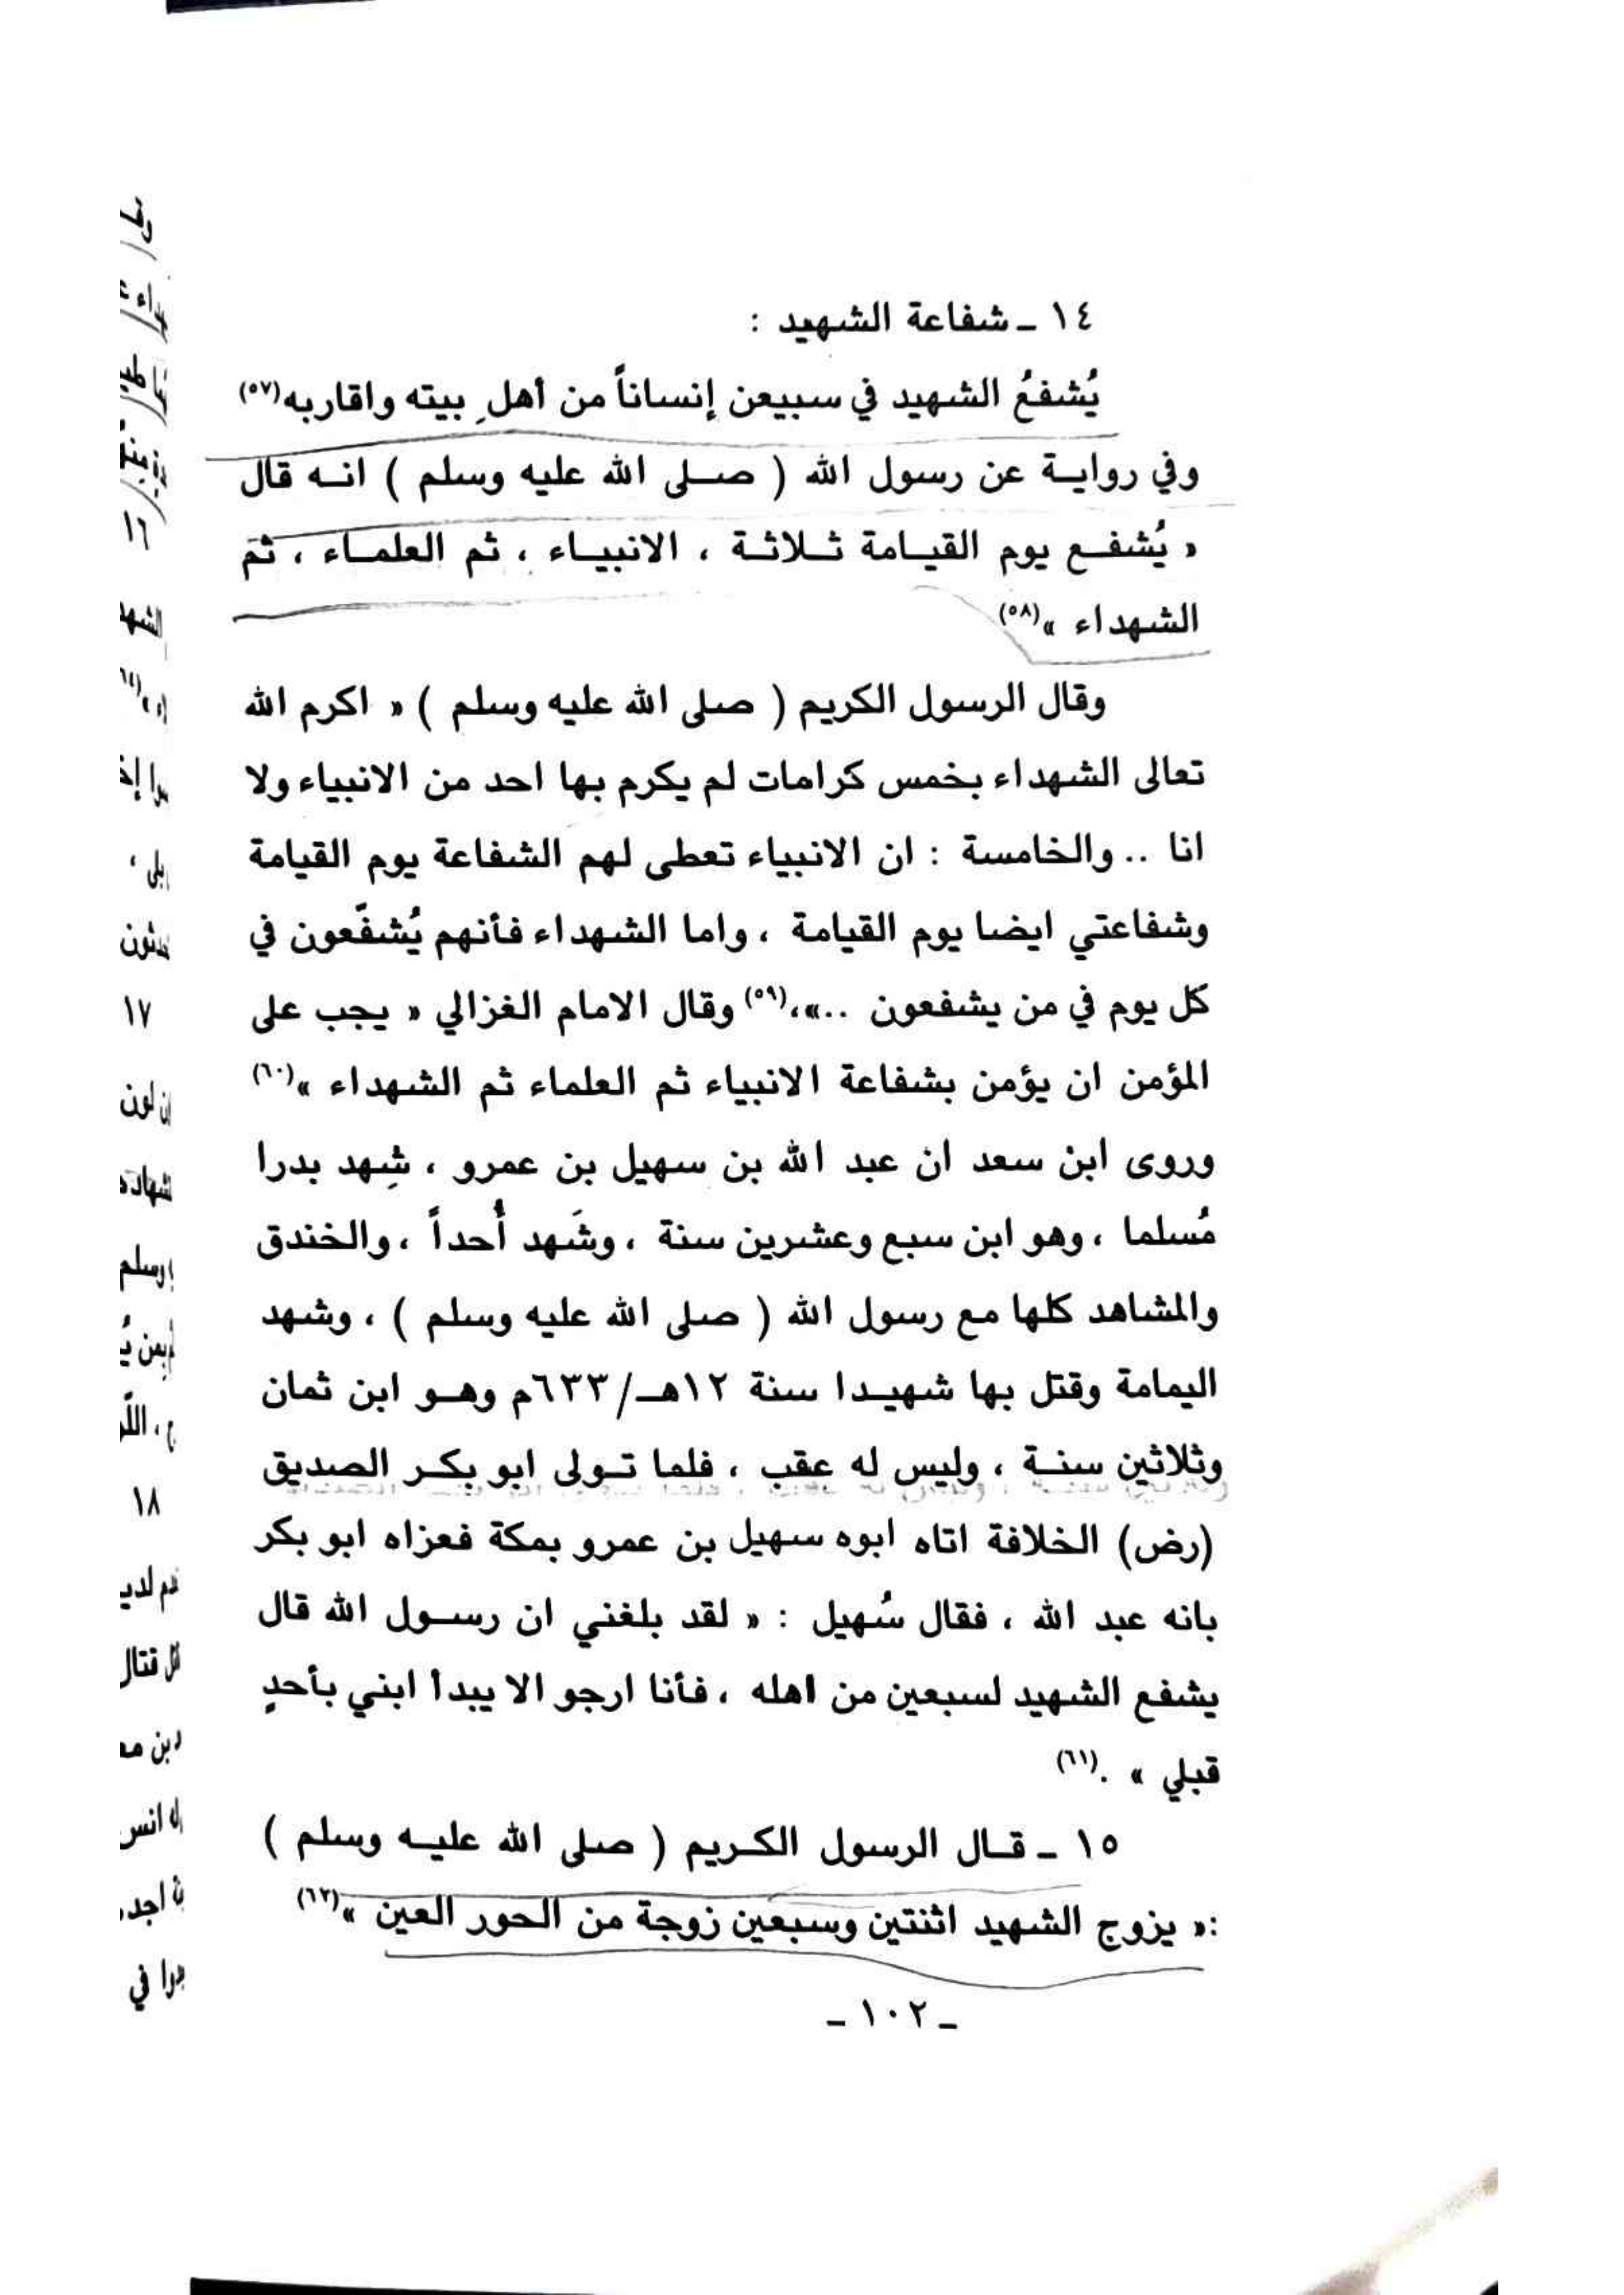 ١٤ ـ شفاعة الشهيد :
يُشفعُ الشهيد في سبيعن إنساناً من أهلِ بيته واقاربه(٥٧)
وفي رواية عن رسول الله ( صلى الله عليه وسلم ) انه قال
« يُشفع يوم القيامة ثلاثة ، الانبياء ، ثم العلماء ، ثم
الشهداء »(٥٨)
وقال الرسول الكريم ( صلى الله عليه وسلم ) « اكرم الله
تعالى الشهداء بخمس كرامات لم يكرم بها احد من الانبياء ولا
انا .. والخامسة : ان الانبياء تعطى لهم الشفاعة يوم القيامة
وشفاعتي ايضا يوم القيامة ، واما الشهداء فأنهم يُشفّعون في
كل يوم في من يشفعون ..»،(٥٩) وقال الامام الغزالي « يجب على
المؤمن ان يؤمن بشفاعة الانبياء ثم العلماء ثم الشهداء »(٦٠)
وروى ابن سعد ان عبد الله بن سهيل بن عمرو ، شِهد بدرا
مُسلما ، وهو ابن سبع وعشرين سنة ، وشَهد أُحداً ، والخندق
والمشاهد كلها مع رسول الله ( صلى الله عليه وسلم ) ، وشهد
اليمامة وقتل بها شهيدا سنة ١٢هـ/٦٣٣م وهو ابن ثمان
وثلاثين سنة ، وليس له عقب ، فلما تولى ابو بكر الصديق
(رض) الخلافة اتاه ابوه سهيل بن عمرو بمكة فعزاه ابو بكر
بانه عبد الله ، فقال سُهيل : « لقد بلغني ان رسول الله قال
يشفع الشهيد لسبعين من اهله ، فأنا ارجو الا يبدأ ابني بأحدٍ
قبلي » .(٦١)
١٥ ـ قال الرسول الكريم ( صلى الله عليه وسلم )
:« يزوج الشهيد اثنتين وسبعين زوجة من الحور العين »(٦٢)
ـ ١٠٢ ـ
١٦
١٧
وسلم
١٨
قتال
انس
في